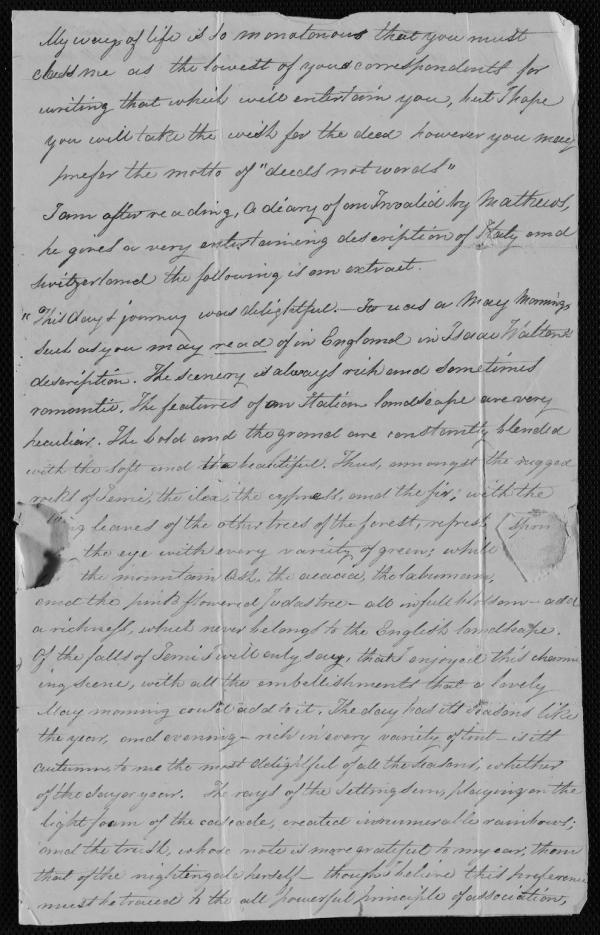 My way of life is so monotonous that you must
class me as the lowest of your correspondents for
writing that which will entertain you, but I hope
you will take the wish for the deed however you may
prefer the motto of "deeds not words"
I am after reading, A diary of an Invalid by Mathews,
he gives a very entertaining description of Italy and
Switzerland the following is an extract.
"This day's journey was delightful.— It was a May Morning
such as you may read of in England in Isaac Walton's
description. The scenery is always rich and sometimes
romantic. The features of an Italian landscape are very
peculiar. The bold and the grand are constantly blended
with the soft and the beautiful. Thus, amongst the rugged
rocks of Terni, the ilex, the cypress, and the fir; with the
ing leaves of the other trees of the forest, refresh
the eye with every variety of green; while
the mountain Ash, the acacia, the laburnam,
and the pink flowered Judas tree — all in full blossom — add
a richness, which never belongs to the English landscape.
Of the falls of Terni I will only say, that I enjoyed this charm
ing scene, with all the embellishments that a lovely
May morning could add to it. The day has its seasons like
the year, and evening — rich in every variety of tint — is its
autumn, to me the most delightful of all the seasons, whether
of the day or year. The rays of the setting sun, playing on the
light foam of the cascade, created innumerable rainbows;
and the trust, whose note is more grateful to my ear, than
that of the nightingale herself — though I believe this preference
must be traced to the all powerful principle of association,